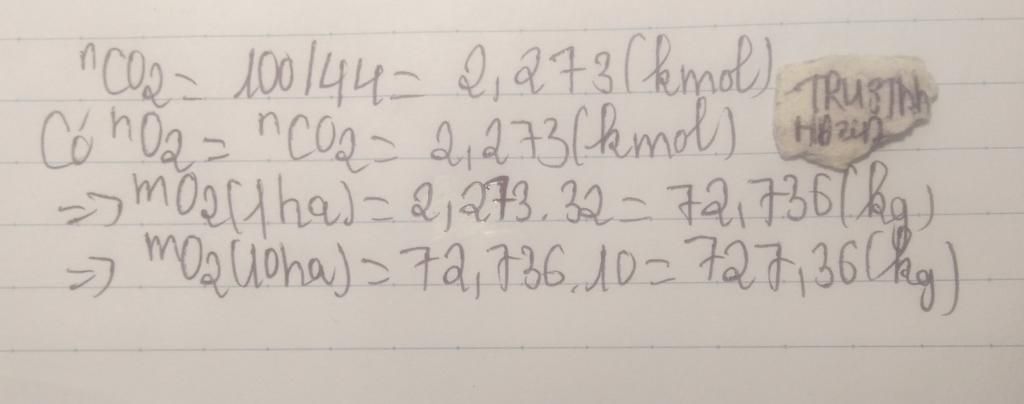 nCO2 = 100/44 = 2,273 (kmol)
Có nO2 = nCO2 = 2,273 (kmol)
=> mO2 (1ha) = 2,273.32 = 72,736 (kg)
=> mO2 (10ha) = 72,736.10 = 727,36 (kg)